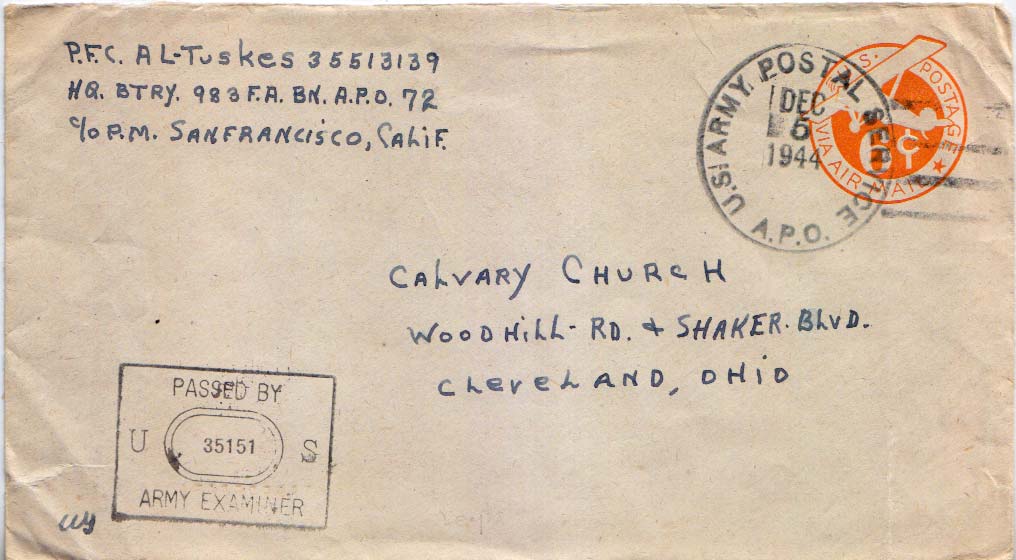 P.F.C. AL-TUSKES 35513139
HQ. BTRY. 983 F.A. BN. A.P.O. 72
C/O P.M. SANFRANCISCO, CALIF.
U.S. ARMY POSTAL SERVICE
A.P.O.
DEC
5
1944
U.S. POSTAGE
VIA AIR MAIL
6¢
CALVARY CHURCH
WOODHILL-RD. & SHAKER. BLVD.
CLEVELAND, OHIO
PASSED BY
U 35151 S
ARMY EXAMINER